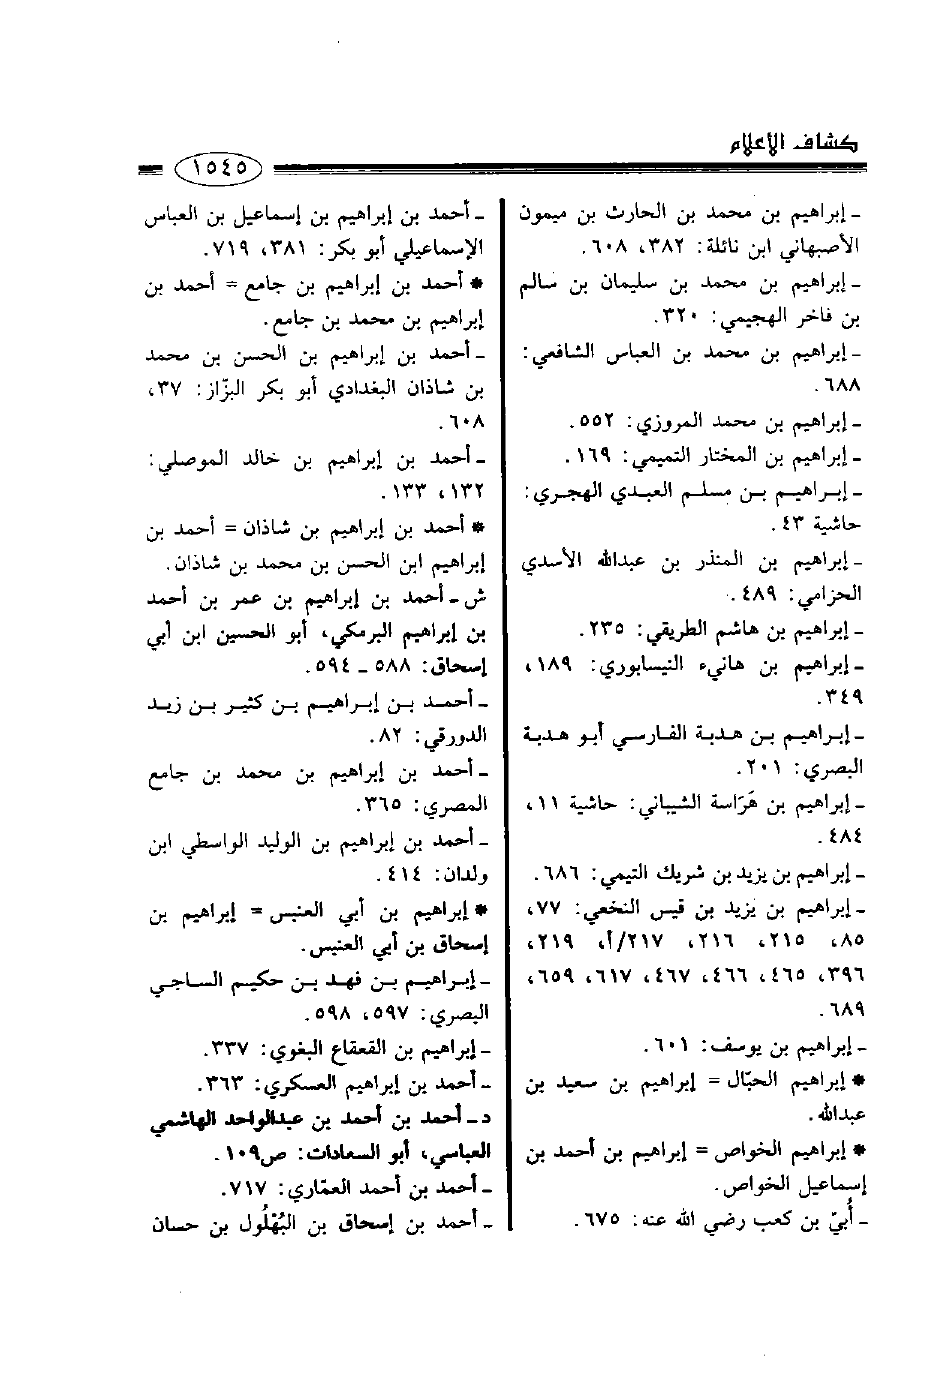 كشاف الأعلام
١٥٤٥
ـ إبراهيم بن محمد بن الحارث بن ميمون
الأصبهاني ابن نائلة: ٣٨٢، ٦٠٨.
ـ إبراهيم بن محمد بن سليمان بن سالم
بن فاخر الهجيمي: ٣٢٠.
ـ إبراهيم بن محمد بن العباس الشافعي:
٦٨٨.
ـ إبراهيم بن محمد المروزي: ٥٥٢.
ـ إبراهيم بن المختار التميمي: ١٦٩.
ـ إبراهيم بن مسلم العبدي الهجري:
حاشية ٤٣.
ـ إبراهيم بن المنذر بن عبدالله الأسدي
الحزامي: ٤٨٩.
ـ إبراهيم بن هاشم الطريقي: ٢٣٥.
ـ إبراهيم بن هانيء النيسابوري: ١٨٩،
٣٤٩.
ـ إبراهيم بن هدبة الفارسي أبو هدبة
البصري: ٢٠١.
ـ إبراهيم بن هَرَاسة الشيباني: حاشية ١١،
٤٨٤.
ـ إبراهيم بن يزيد بن شريك التيمي: ٦٨٦.
ـ إبراهيم بن يزيد بن قيس النخعي: ٧٧،
٨٥، ٢١٥، ٢١٦، ٢١٧/أ، ٢١٩،
٣٩٦، ٤٦٥، ٤٦٦، ٤٦٧، ٦١٧، ٦٥٩،
٦٨٩.
ـ إبراهيم بن يوسف: ٦٠١.
* إبراهيم الحبّال = إبراهيم بن سعيد بن
عبدالله.
* إبراهيم الخواص = إبراهيم بن أحمد بن
إسماعيل الخواص.
ـ أُبيّ بن كعب رضي الله عنه: ٦٧٥.
ـ أحمد بن إبراهيم بن إسماعيل بن العباس
الإسماعيلي أبو بكر: ٣٨١، ٧١٩.
* أحمد بن إبراهيم بن جامع = أحمد بن
إبراهيم بن محمد بن جامع.
ـ أحمد بن إبراهيم بن الحسن بن محمد
بن شاذان البغدادي أبو بكر البزّاز: ٣٧،
٦٠٨.
ـ أحمد بن إبراهيم بن خالد الموصلي:
١٣٢، ١٣٣.
* أحمد بن إبراهيم بن شاذان = أحمد بن
إبراهيم ابن الحسن بن محمد بن شاذان.
ش ـ أحمد بن إبراهيم بن عمر بن أحمد
بن إبراهيم البرمكي، أبو الحسين ابن أبي
إسحاق: ٥٨٨ ـ ٥٩٤.
ـ أحمد بن إبراهيم بن كثير بن زيد
الدورقي: ٨٢.
ـ أحمد بن إبراهيم بن محمد بن جامع
المصري: ٣٦٥.
ـ أحمد بن إبراهيم بن الوليد الواسطي ابن
ولدان: ٤١٤.
* إبراهيم بن أبي العنبس = إبراهيم بن
إسحاق بن أبي العنبس.
ـ إبراهيم بن فهد بن حكيم الساجي
البصري: ٥٩٧، ٥٩٨.
ـ إبراهيم بن القعقاع البغوي: ٣٣٧.
ـ أحمد بن إبراهيم العسكري: ٣٦٣.
د ـ أحمد بن أحمد بن عبدالواحد الهاشمي
العباسي، أبو السعادات: ص١٠٩.
ـ أحمد بن أحمد العمّاري: ٧١٧.
ـ أحمد بن إسحاق بن البُهْلُول بن حسان